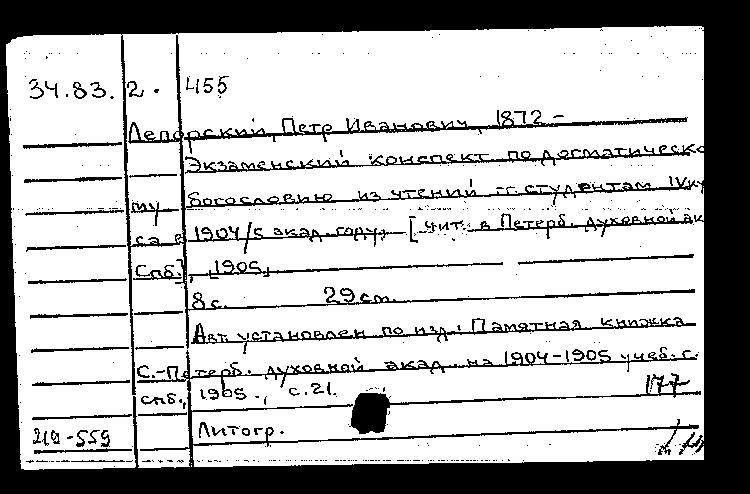 34.83.2. 455
Лепорский, Петр Иванович, 1872 -
Экзаменский конспект по догматическо
му богословию из чтений студентам IV ку
са в 1904/5 акад. году, [чит. в Петерб. духовной ак
Спб.], [1905]
8 с. 29 см.
Авт. установлен по изд.: Памятная книжка
С.-Петерб. духовной акад. на 1904-1905 учеб. г.
спб., 1905., с. 21.
177
219-559 Литогр.